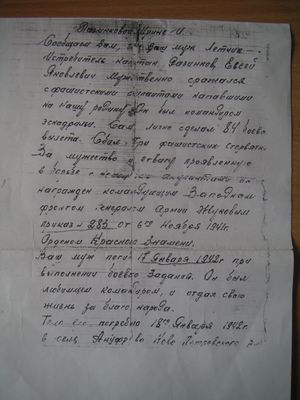 Разинковой Ирине И.
Сообщаем Вам, что Ваш муж Летчик-
Истребитель капитан, Разинков Евсей
Яковлевич мужественно сражался
с фашистскими напавшими
на нашу родину. Он был командиром
эскадрильи. Сам лично сделал 84 боев.
вылета. Сбил три фашистских
За мужество и отвагу проявленную
в борьбе с
награжден командующим Западным
фронтом генералом Армии Жуковым
приказ № 283 от 6го Ноября 1941г.
Орденом Красного Знамени.
Ваш муж погиб 17 Января 1942г при
выполнении боевого задания. Он был
любимцем командиром, и отдал свою
жизнь за благо народа.
Тело его погребно 18го Января 1942г.
в селе Ново Петровского